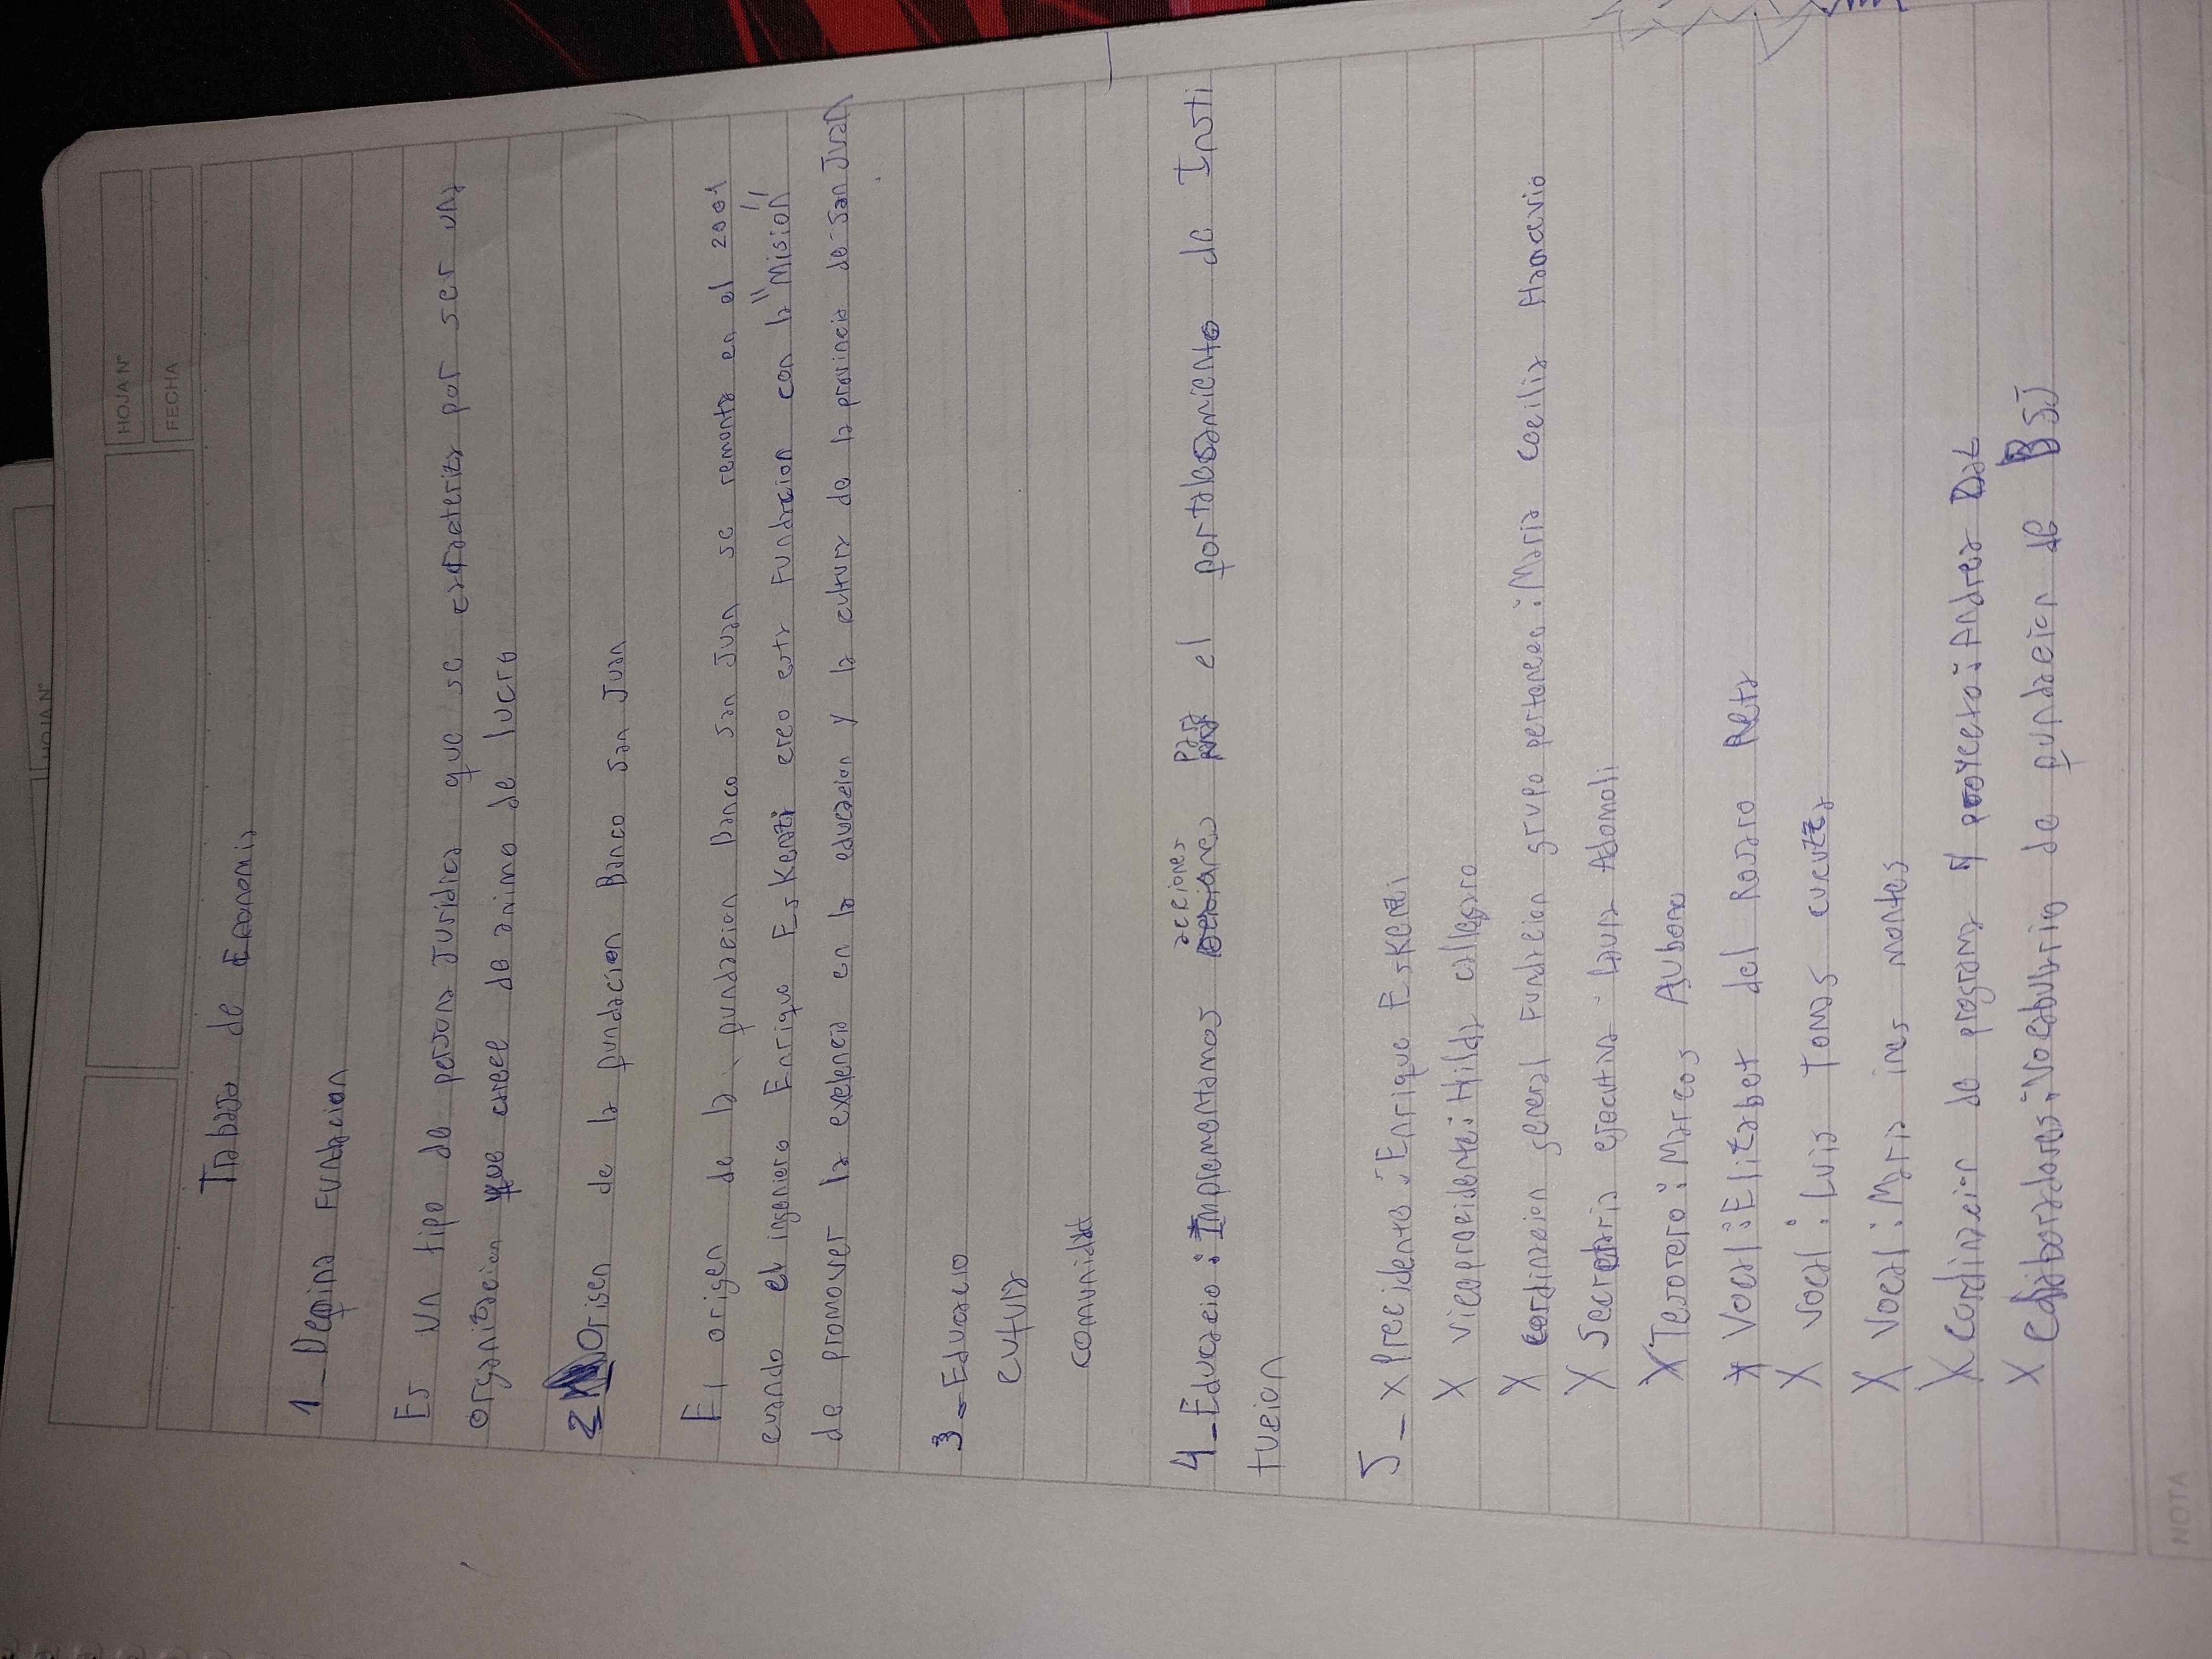 HOJA N°
HOJA N°
FECHA
Trabajo de Economia
1_Defina Fundacion
Es un tipo de persona Juridica que se caracteriza por ser una
organizacion que careel de animo de lucro
2 Origen de la fundacion Banco san Juan
El origen de la fundacion Banco san Juan se remonta en el 2001
cuando el ingeniero Enrique Eskenazi creo esta Fundacion con la "Misión"
de promover la exelencia en la educacion y la cultura de la provincia de san Juan
3_-Educacio
cutura
comunidad
4_Educacio: Imprementamos acciones para el fortalesamiento de Insti
tucion
5_ x Precidente: Enrique Eskenazi
x viceprecidente: Hilda callegaro
x cordinacion general Fundacion grupo pertenece: Maria Cecilia
x secretaria ejecutiva: laura Adamoli
x Tesorero: Marcos Aubone
x Vocal: Elizabet del Rosaro Reta
x vocal: Luis Tomas cucuzza
x Vocal: Maria ines montes
x cordinacion de programa y proyecto: Andrea Dat
x colaboradores: Vocabulario de fundacion de BSJ
NOTA